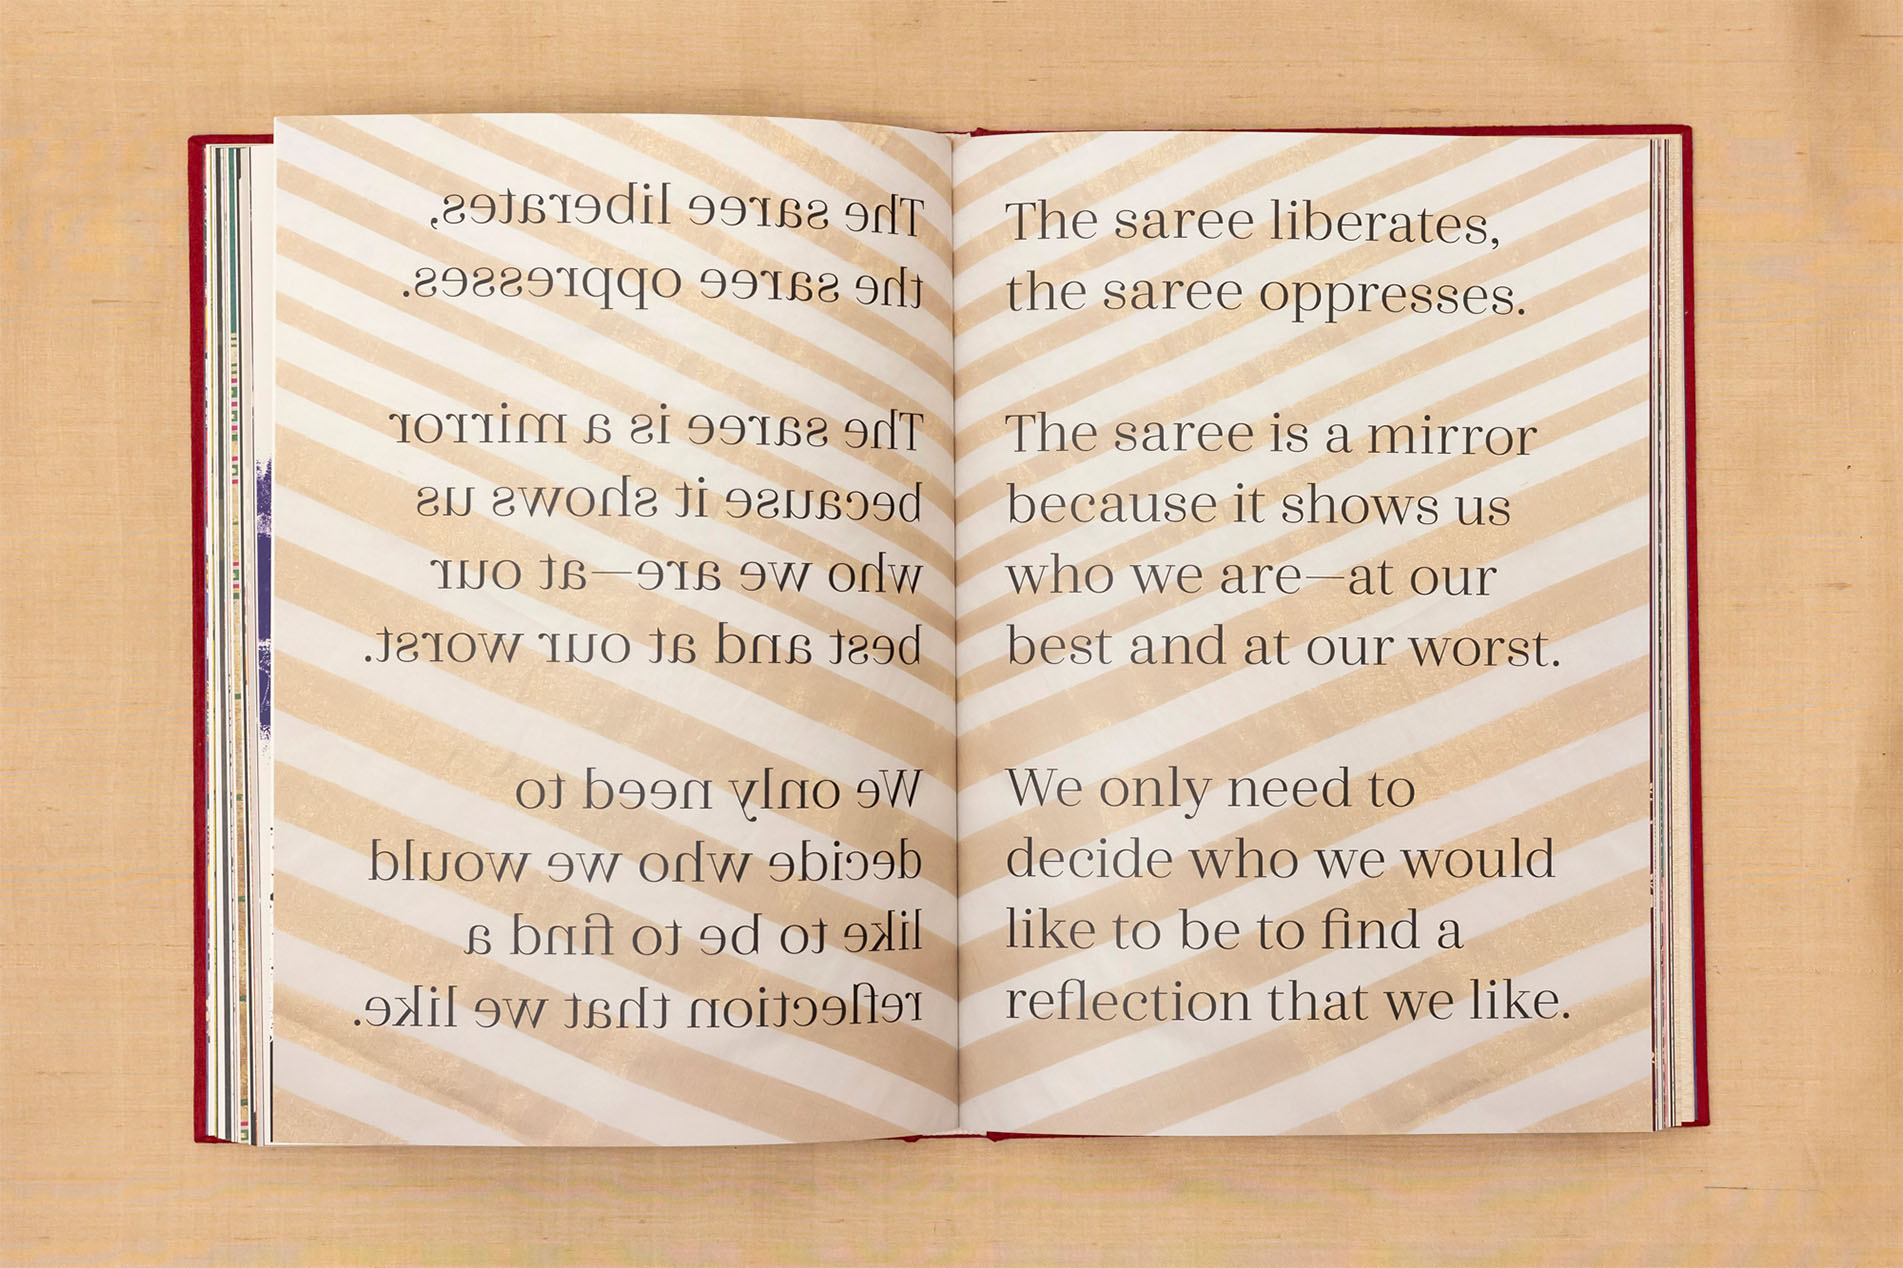 The saree liberates,
the saree oppresses.
The saree is a mirror
because it shows us
who we are—at our
best and at our worst.
We only need to
decide who we would
like to be to find a
reflection that we like.
The saree liberates,
the saree oppresses.
The saree is a mirror
because it shows us
who we are—at our
best and at our worst.
We only need to
decide who we would
like to be to find a
reflection that we like.